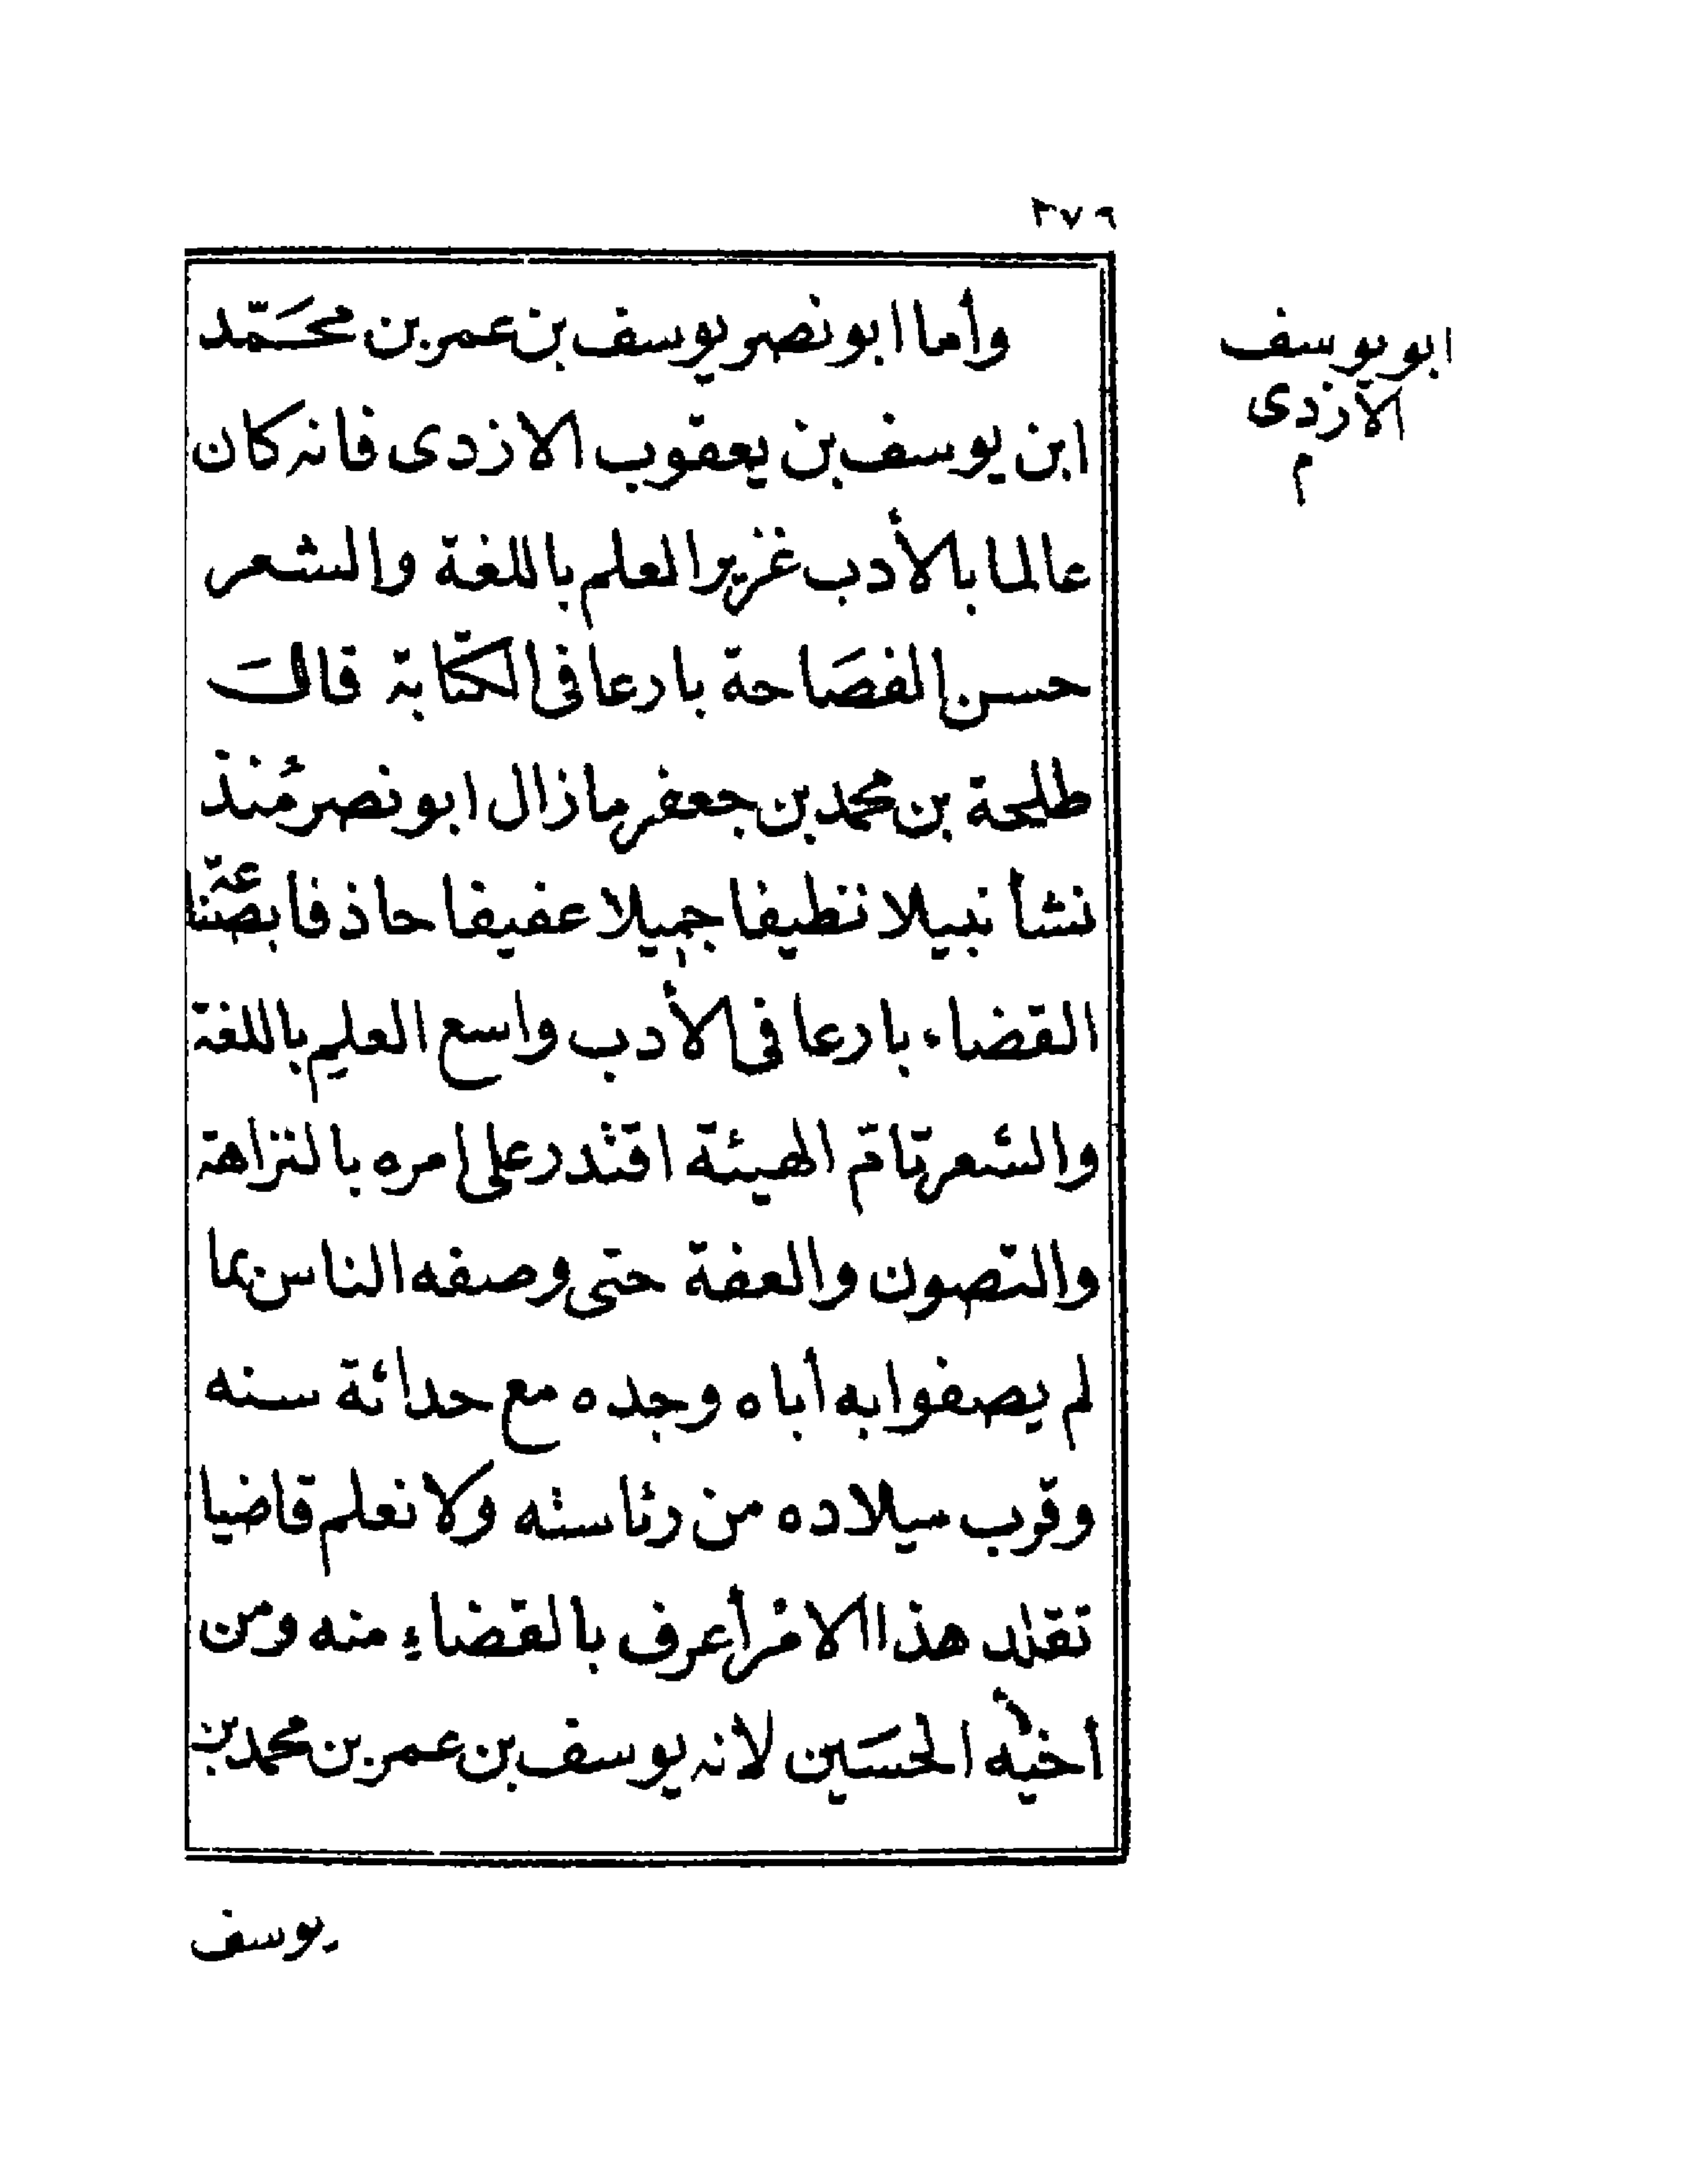 ٢٧٩
ابو يوسف
الازدى
م
وأما ابو نصر يوسف بن عمر بن محمّد
ابن يوسف بن يعقوب الازدى فانه كان
عالما بالأدب غزير العلم باللغة والشعر
حسن الفصَاحة بارعا فى الكتابة قالَ
طلحة بن محمد بن جعفر ما زال ابو نصر مُنذ
نشأ نبيلا نظيفا جميلا عفيفا حاذفا بصنا عة
القضاء بارعا فى الأدب واسع العلم باللغة
والشعر تامّ الهيئة اقتدر على امره بالنزاهة
والتصون والعفة حتى وصفه الناس بما
لم يصفوا به أباه وجده مع حداثة سنه
وقرب ميلاده من رئاسته ولا نعلم قاضيا
تقلد هذا الامر أعرف بالقضاءِ منه ومن
أخيه الحسَين لانه يوسف بن عمر بن محمد بن
يوسف